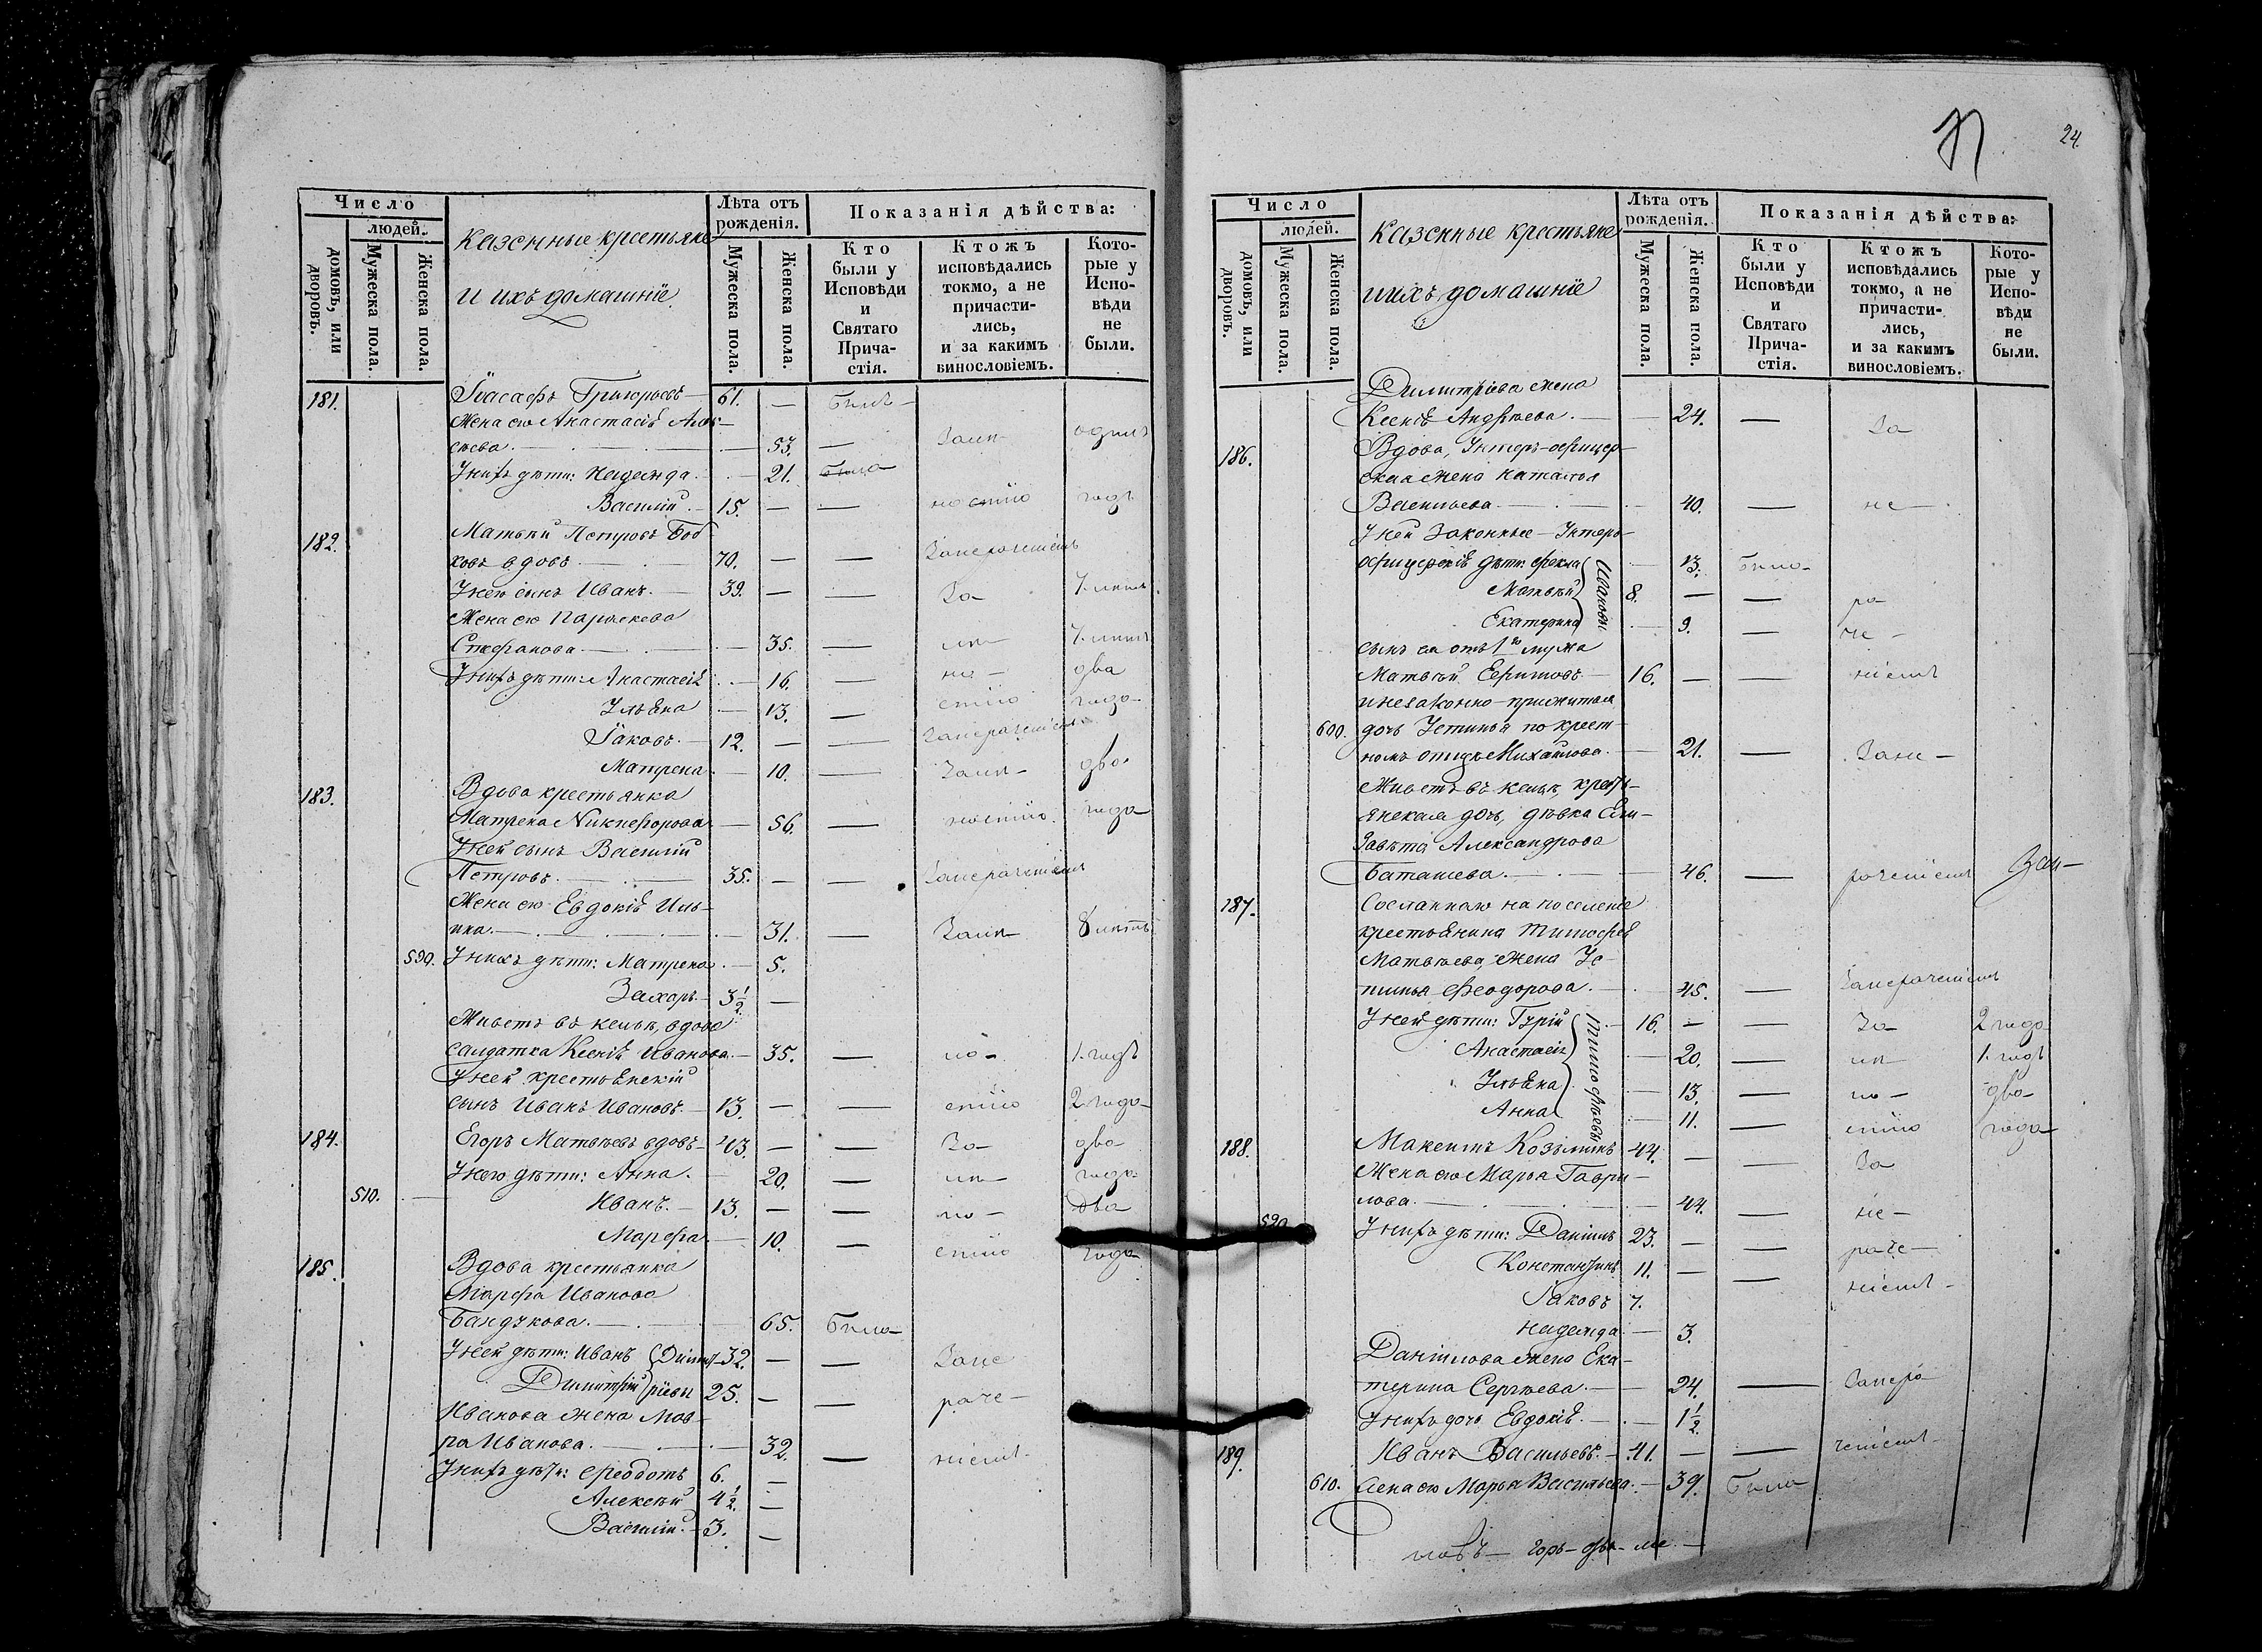 Число
людей.
домовъ, или дворовъ.
Мужеска пола.
Женска пола.
Казенные крестьяне
и ихъ домашніе
Лѣта отъ рожденія.
Мужеска пола.
Женска пола.
Показанія дѣйства:
Кто были у Исповѣди и Святаго Причастія.
Ктожъ исповѣдались токмо, а не причастились, и за какимъ винословіемъ.
Которые у Исповѣди не были.
181. Іоасафъ Григорьевъ 61. — былъ
Жена его Анастасія Алек-
сѣева. — 53. — одинъ
У нихъ дѣти: Надежда — 21. была
Василій 15. — — годъ
182. Матвѣй Петровъ Боб-
ковъ вдовъ 70. — —
У него сынъ Иванъ. 39. — — За 7. лѣтъ
Жена его Параскева
Стефанова — 35. — лѣ 7. лѣтъ
У нихъ дѣти: Анастасія — 16. — но — два
Ульяна — 13. — стію года
Іаковъ. 12. — —
Матрена — 10. — два
183. Вдова крестьянка
Матрена Никифорова — 56. — ностію. года
У ней сынъ Василій
Петровъ. 35. — —
Жена его Евдокія Иль-
ина. — 31. — 8 лѣтъ
590. У нихъ дѣти: Матрена — 5.
Захаръ. 3 1/2 —
Живетъ въ кельѣ, вдова
салдатка Ксенія Иванова — 35. — но — 1. годъ
У ней крестьянскій
сынъ Иванъ Ивановъ. 13. — — стію 2. года
184. Егоръ Матвѣевъ вдовъ 43. — — За два
У него дѣти: Анна. — 20. — лѣ года
510. Иванъ. 13. — — но — два
Марфа — 10. — стію года
185. Вдова крестьянка
Марфа Иванова
Бандукова. — 65. была
У ней дѣти: Иванъ (Дими- 32. — — Запе
Димитрій тріевы 25. — — раче —
Иванова жена Мав-
ра Иванова. — 32. — ніемъ
У нихъ дѣти: Феодотъ 6. —
Алексѣй 4 1/2. —
Василій. 3. —
24.
Число
людей.
домовъ, или дворовъ.
Мужеска пола.
Женска пола.
Казенные крестьяне
и ихъ домашніе
Лѣта отъ рожденія.
Мужеска пола.
Женска пола.
Показанія дѣйства:
Кто были у Исповѣди и Святаго Причастія.
Ктожъ исповѣдались токмо, а не причастились, и за какимъ винословіемъ.
Которые у Исповѣди не были.
Димитріева жена
Ксенія Андреева. — 24. — За
186. Вдова, Унтеръ-офицер-
ская жена Наталья
Васильева — 40. — не —
У ней законные Унтеръ-
офицерскіе дѣти: Фекла — 13. была
Матвѣй 8. — — ра
Екатерина — 9. — че —
Ивановы
сынъ ея отъ 1го мужа
Матвѣй Ефимовъ 16. — — ніемъ
и незаконно-прижитая
600. дочь Устинья по крест-
номъ отцѣ Михайлова. — 21. —
Живетъ въ кельѣ, кресть-
янская дочь, дѣвка Ели-
завета Александрова
Баташева. — 46. —
187. Сосланнаго на поселеніе
крестьянина Тимофея
Матвѣева, жена Ус-
тинья Феодорова. — 45. —
У ней дѣти: Гурій 16. — — За 2 года
Анастасія — 20. — лѣ 1. годъ
Ульяна — 13. — но — два
Анна — 11. — стію года
Тимофѣевы
188. Максимъ Козьминъ 44. — — За
Жена его Марья Гаври-
лова. — 44. — пе —
520. У нихъ дѣти: Даніилъ 23. — — раче —
Константинъ 11. — — ніемъ —
Іаковъ 7.
Надежда — 3.
Даніилова жена Ека-
терина Сергѣева. — 24. — Запера
У нихъ дочь Евдокія. — 1 1/2.
189. Иванъ Васильевъ. 41. — — ченіемъ
610. Жена его Марья Васильева. — 39. была